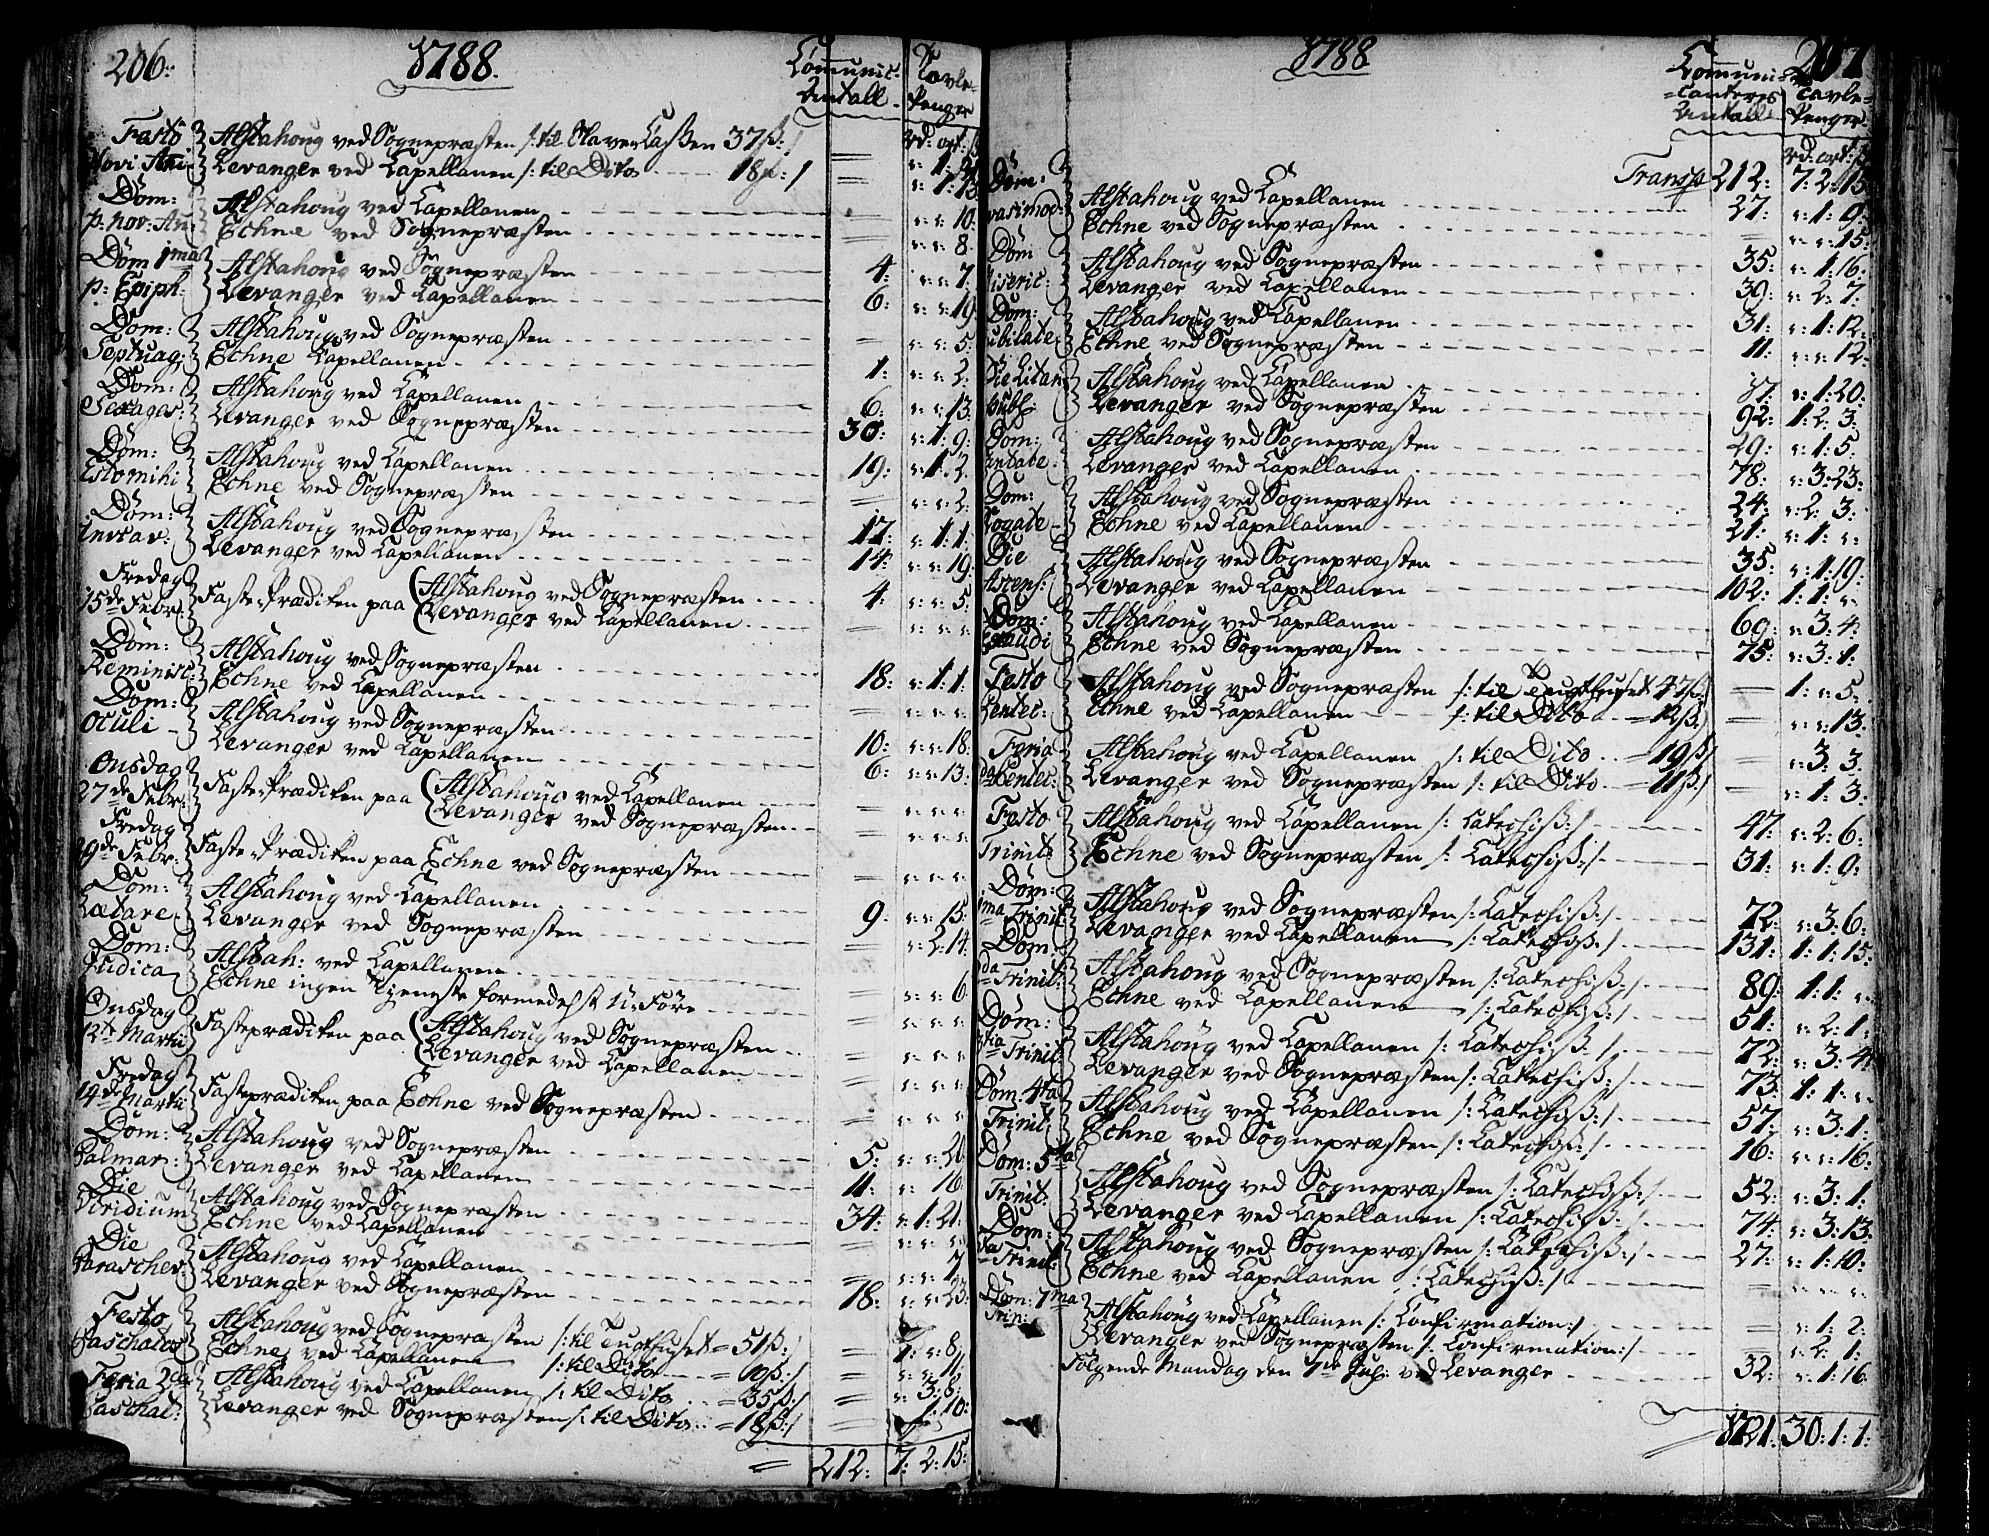 206: 1788. Communic: Antall Tavle Penger
rd: ort: ß
Festo Novi Ani Alstahoug ved Sognepræsten /: til SlaverCaßen 37ß: /
Levanger ved Capellanen /: til Dito 18ß: / = r: 1: 13
Dom: p: nov: An: Alstahoug ved Capellanen r: r: 10:
Echne ved Sognepræsten = r: r: 8:
Dom 1ma p: Epiph: Alstahoug ved Sognepræsten 4: r: r: 7:
Levanger ved Capellanen 6: r: r: 19
Dom: Septuag: Alstahoug ved Sognepræsten = r: r: 5:
Echne Capellanen 1: r: r: 2:
Dom: Sexages: Alstahoug ved Capellanen 6: r: r: 13:
Levanger ved Sognepræsten 30: r: 1: 9:
Dom: Estomihi Alstahoug ved Capellanen 19: r: 1: 2:
Echne ved Sognepræsten = r: r: 2:
Dom: Invcav: Alstahoug ved Sognepræsten 17: r: 1: 1:
Levanger ved Capellanen 14: r: r: 19:
Fredag 15de Febr: Faste Prædiken paa Alstahoug ved Sognepræsten 4: r: r: 5:
Levanger ved Capellanen = r: r: r:
Dom: Reminisc: Alstahoug ved Sognepræsten 18: r: 1: 1:
Echne ved Capellanen = r: r: r:
Dom: Oculi Alstahoug ved Sognepræsten 10: r: r: 18:
Levanger ved Capellanen 6: r: r: 13:
Onsdag 27de Febr: Faste Prædiken paa Alstahoug ved Capellanen r: r: r:
Levanger ved Sognepræsten = r: r: r:
Fredag 29de Febr: Faste Prædiken paa Echne ved Sognepræsten = r: r: r:
Dom: Lætare Alstahoug ved Capellanen 9: r: r: 15:
Levanger ved Sognepræsten = r: 2: 14:
Dom: Judica Alstah: ved Capellanen = r: r: 6:
Echne ingen Tjeneste formedelst U: Føre = r: r: r:
Onsdag 12te Martii Fasteprædiken paa Alstahoug ved Sognepræsten = r: r: r:
Levanger ved Capellanen = r: r: r:
Fredag 14de Martii Fasteprædiken paa Echne ved Sognepræsten = r: r: r:
Dom: Palmar: Alstahoug ved Sognepræsten 5: r: r: 20:
Levanger ved Capellanen 11: r: 16:
Die Viridium Alstahoug ved Sognepræsten 34: r: 1: 21:
Echne ved Capellanen = r: r: r:
Die Paraschev: Alstahoug ved Capellanen = r: r: 7
Levanger ved Sognepræsten 78: r: r: 23:
Festo Paschatos Alstahoug ved Sognepræsten /: til Tugthuset = 51ß: / = 1: r: 8:
Echne ved Capellanen /: til Dito = 10ß: / = r: r: 11:
Feria 2da Paschat: Alstahoug ved Capellanen /: til Dito = 35ß: / = r: 3: 8:
Levanger ved Sognepræsten /: til Dito = 18ß: / = 1: 10:
= 212: 7: 2: 15:
1788 Communicanters Antall Tavle Penger 207
rd: ort: ß
Transp 212: 7: 2: 15
Dom: Quasimod: Alstahoug ved Capellanen 27: r: 1: 9:
Echne ved Sognepræsten = r: r: 15:
Dom Miseric: Alstahoug ved Sognepræsten 35: r: 1: 16:
Levanger ved Capellanen 39: r: 2: 7:
Dom: Jubilate Alstahoug ved Capellanen 31: r: 1: 12:
Echne ved Sognepræsten 11: r: r: 12:
Die Litan publ: Alstahoug ved Capellanen 37: r: 1: 20:
Levanger ved Sognepræsten 92: 1: 2: 3:
Dom: Cantate Alstahoug ved Sognepræsten 29: r: 1: 5:
Levanger ved Capellanen 78: r: 3: 23:
Dom: Rogate Alstahoug ved Sognepræsten 24: r: 2: 3:
Echne ved Capellanen 21: r: 1: r:
Die Ascens: Alstahoug ved Sognepræsten 35: r: 1: 19:
Levanger ved Capellanen 102: 1: 1: r:
Dom: Exaudi Alstahoug ved Capellanen 69: r: 3: 4:
Echne ved Sognepræsten 75: r: 3: 1:
Festo Pentec: Alstahoug ved Sognepræsten /: til Tugthuset 47ß: / = 1: r: 5:
Echne ved Capellanen /: til Dito = 12ß: / = r: r: 13:
Feria 2da Pentec: Alstahoug ved Capellanen /: til Dito = 19ß: / r: 3: 3
Levanger ved Sognepræsten /: til Dito = 11ß: / = r: 1: 3:
Festo Trinit: Alstahoug ved Capellanen /: Catechiß: / 47: r: 2: 6:
Echne ved Sognepræsten /: Catechiß: / 31: r: 1: 9:
Dom: 1ma Trinit: Alstahoug ved Sognepræsten /: Catechiß: / 72: r: 3: 6:
Levanger ved Capellanen /: Catechiß: / 131: 1: 1: 15:
Dom: 2da Trinit: Alstahoug ved Sognepræsten /: Catechiß: / 89: 1: 1: r:
Echne ved Capellanen /: Catechiß: / 51: r: 2: 1:
Dom: 3tia Trinit: Alstahoug ved Capellanen /: Catechiß: / 72: r: 3: 4:
Levanger ved Sognepræsten /: Catechiß: / 73: 1: 1: r:
Dom: 4ta Trinit: Alstahoug ved Capellanen /: Catechiß: / 57: r: 3: 1:
Echne ved Sognepræsten /: Catechiß: / 16: r: r: 16:
Dom: 5ta Trinit: Alstahoug ved Sognepræsten /: Catechiß: / 52: r: 3: 1:
Levanger ved Capellanen /: Catechiß: / 74: r: 3: 13:
Dom: 6ta Trinit: Alstahoug ved Sognepræsten /: Catechiß: / 27: r: 1: 10:
Echne ved Capellanen /: Catechiß: / = r: r: r:
Dom: 7ma Trin: Alstahoug ved Capellanen /: Confirmation: / = r: 1: 2:
Levanger ved Sognepræsten /: Confirmation: / = r: 2: 1:
Følgende Mandag den 7de Julj: ved Levanger 32: r: 1: 16:
= 1721: 30: 1: 1: